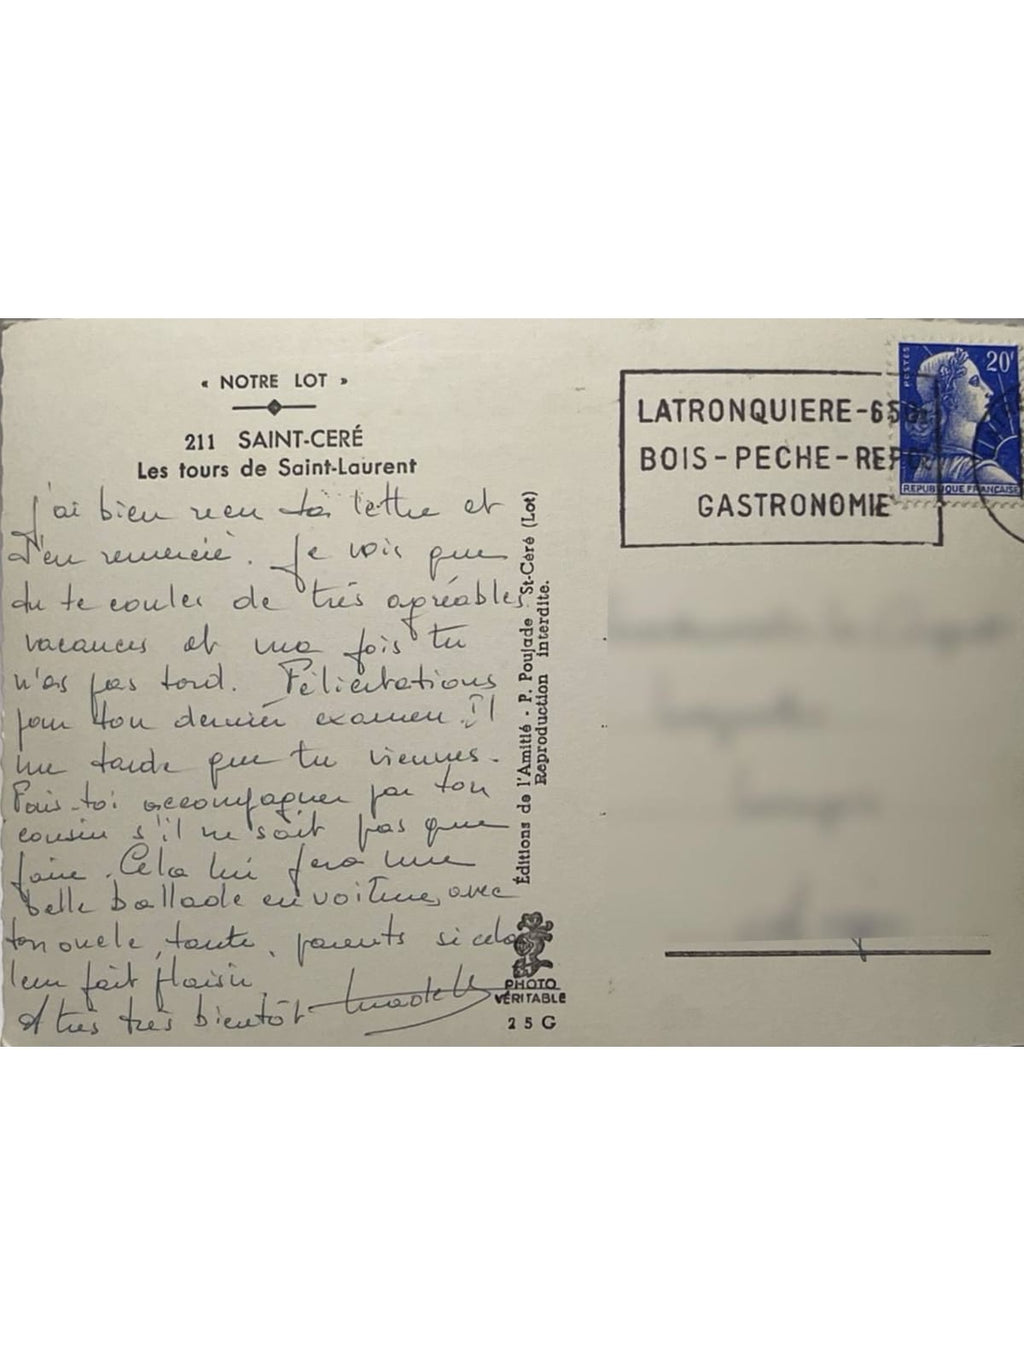 « NOTRE LOT »
211 SAINT-CERÉ
Les tours de Saint-Laurent
j'ai bien reçu ta lettre et
t'en remercie. Je vois que
tu te coules de très agréables
vacances et ma fois tu
n'as pas tord. Félicitations
pour ton dernier examen. Il
me tarde que tu viennes.
Fais-toi accompagner par ton
cousin s'il ne sait pas que
faire. Cela lui fera une
belle ballade en voiture, avec
ton oncle, tante, parents si cela
leur fait plaisir.
A très très bientôt
Éditions de l'Amitié - P. Poujade - St-Céré (Lot)
Reproduction interdite.
PHOTO
VÉRITABLE
25G
LATRONQUIERE-650
BOIS-PECHE-REP
GASTRONOMIE
POSTES
20F
REPUBLIQUE FRANÇAISE